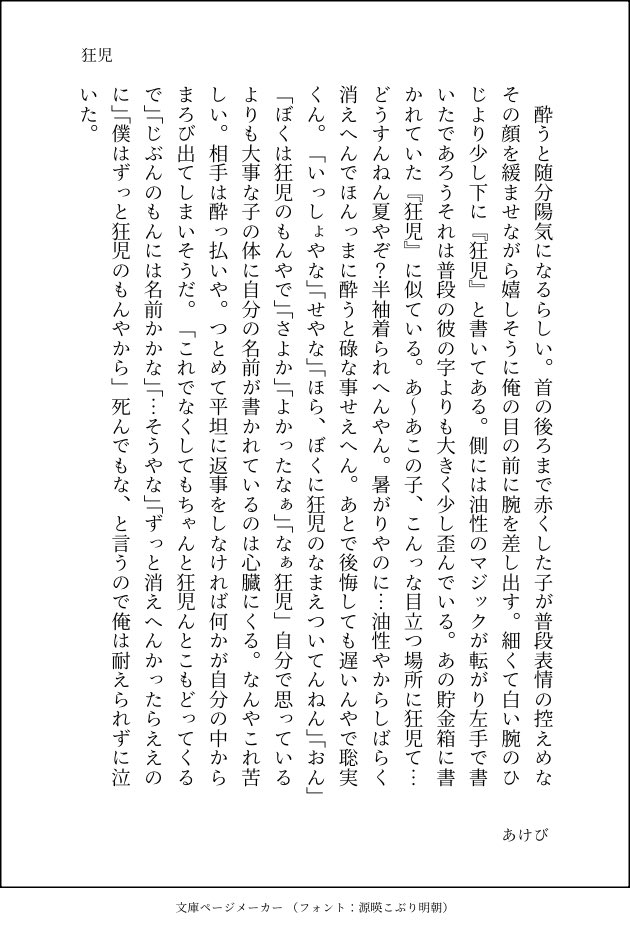 狂児
　酔うと随分陽気になるらしい。首の後ろまで赤くした子が普段表情の控えめな
その顔を緩ませながら嬉しそうに俺の目の前に腕を差し出す。細くて白い腕のひ
じより少し下に『狂児』と書いてある。側には油性のマジックが転がり左手で書
いたであろうそれは普段の彼の字よりも大きく少し歪んでいる。あの貯金箱に書
かれていた『狂児』に似ている。あ〜あこの子、こんっな目立つ場所に狂児て…
どうすんねん夏やぞ？半袖着られへんやん。暑がりやのに…油性やからしばらく
消えへんでほんっまに酔うと碌な事せえへん。あとで後悔しても遅いんやで聡実
くん。「いっしょやな」「せやな」「ほら、ぼくに狂児のなまえついてんねん」「おん」
「ぼくは狂児のもんやで」「さよか」「よかったなぁ」「なぁ狂児」自分で思っている
よりも大事な子の体に自分の名前が書かれているのは心臓にくる。なんやこれ苦
しい。相手は酔っ払いや。つとめて平坦に返事をしなければ何かが自分の中から
まろび出てしまいそうだ。「これでなくしてもちゃんと狂児んとこもどってくる
で」「じぶんのもんには名前かかな」「…そうやな」「ずっと消えへんかったらええの
に」「僕はずっと狂児のもんやから」死んでもな、と言うので俺は耐えられずに泣
いた。
あけび
文庫ページメーカー （フォント：源暎こぶり明朝）